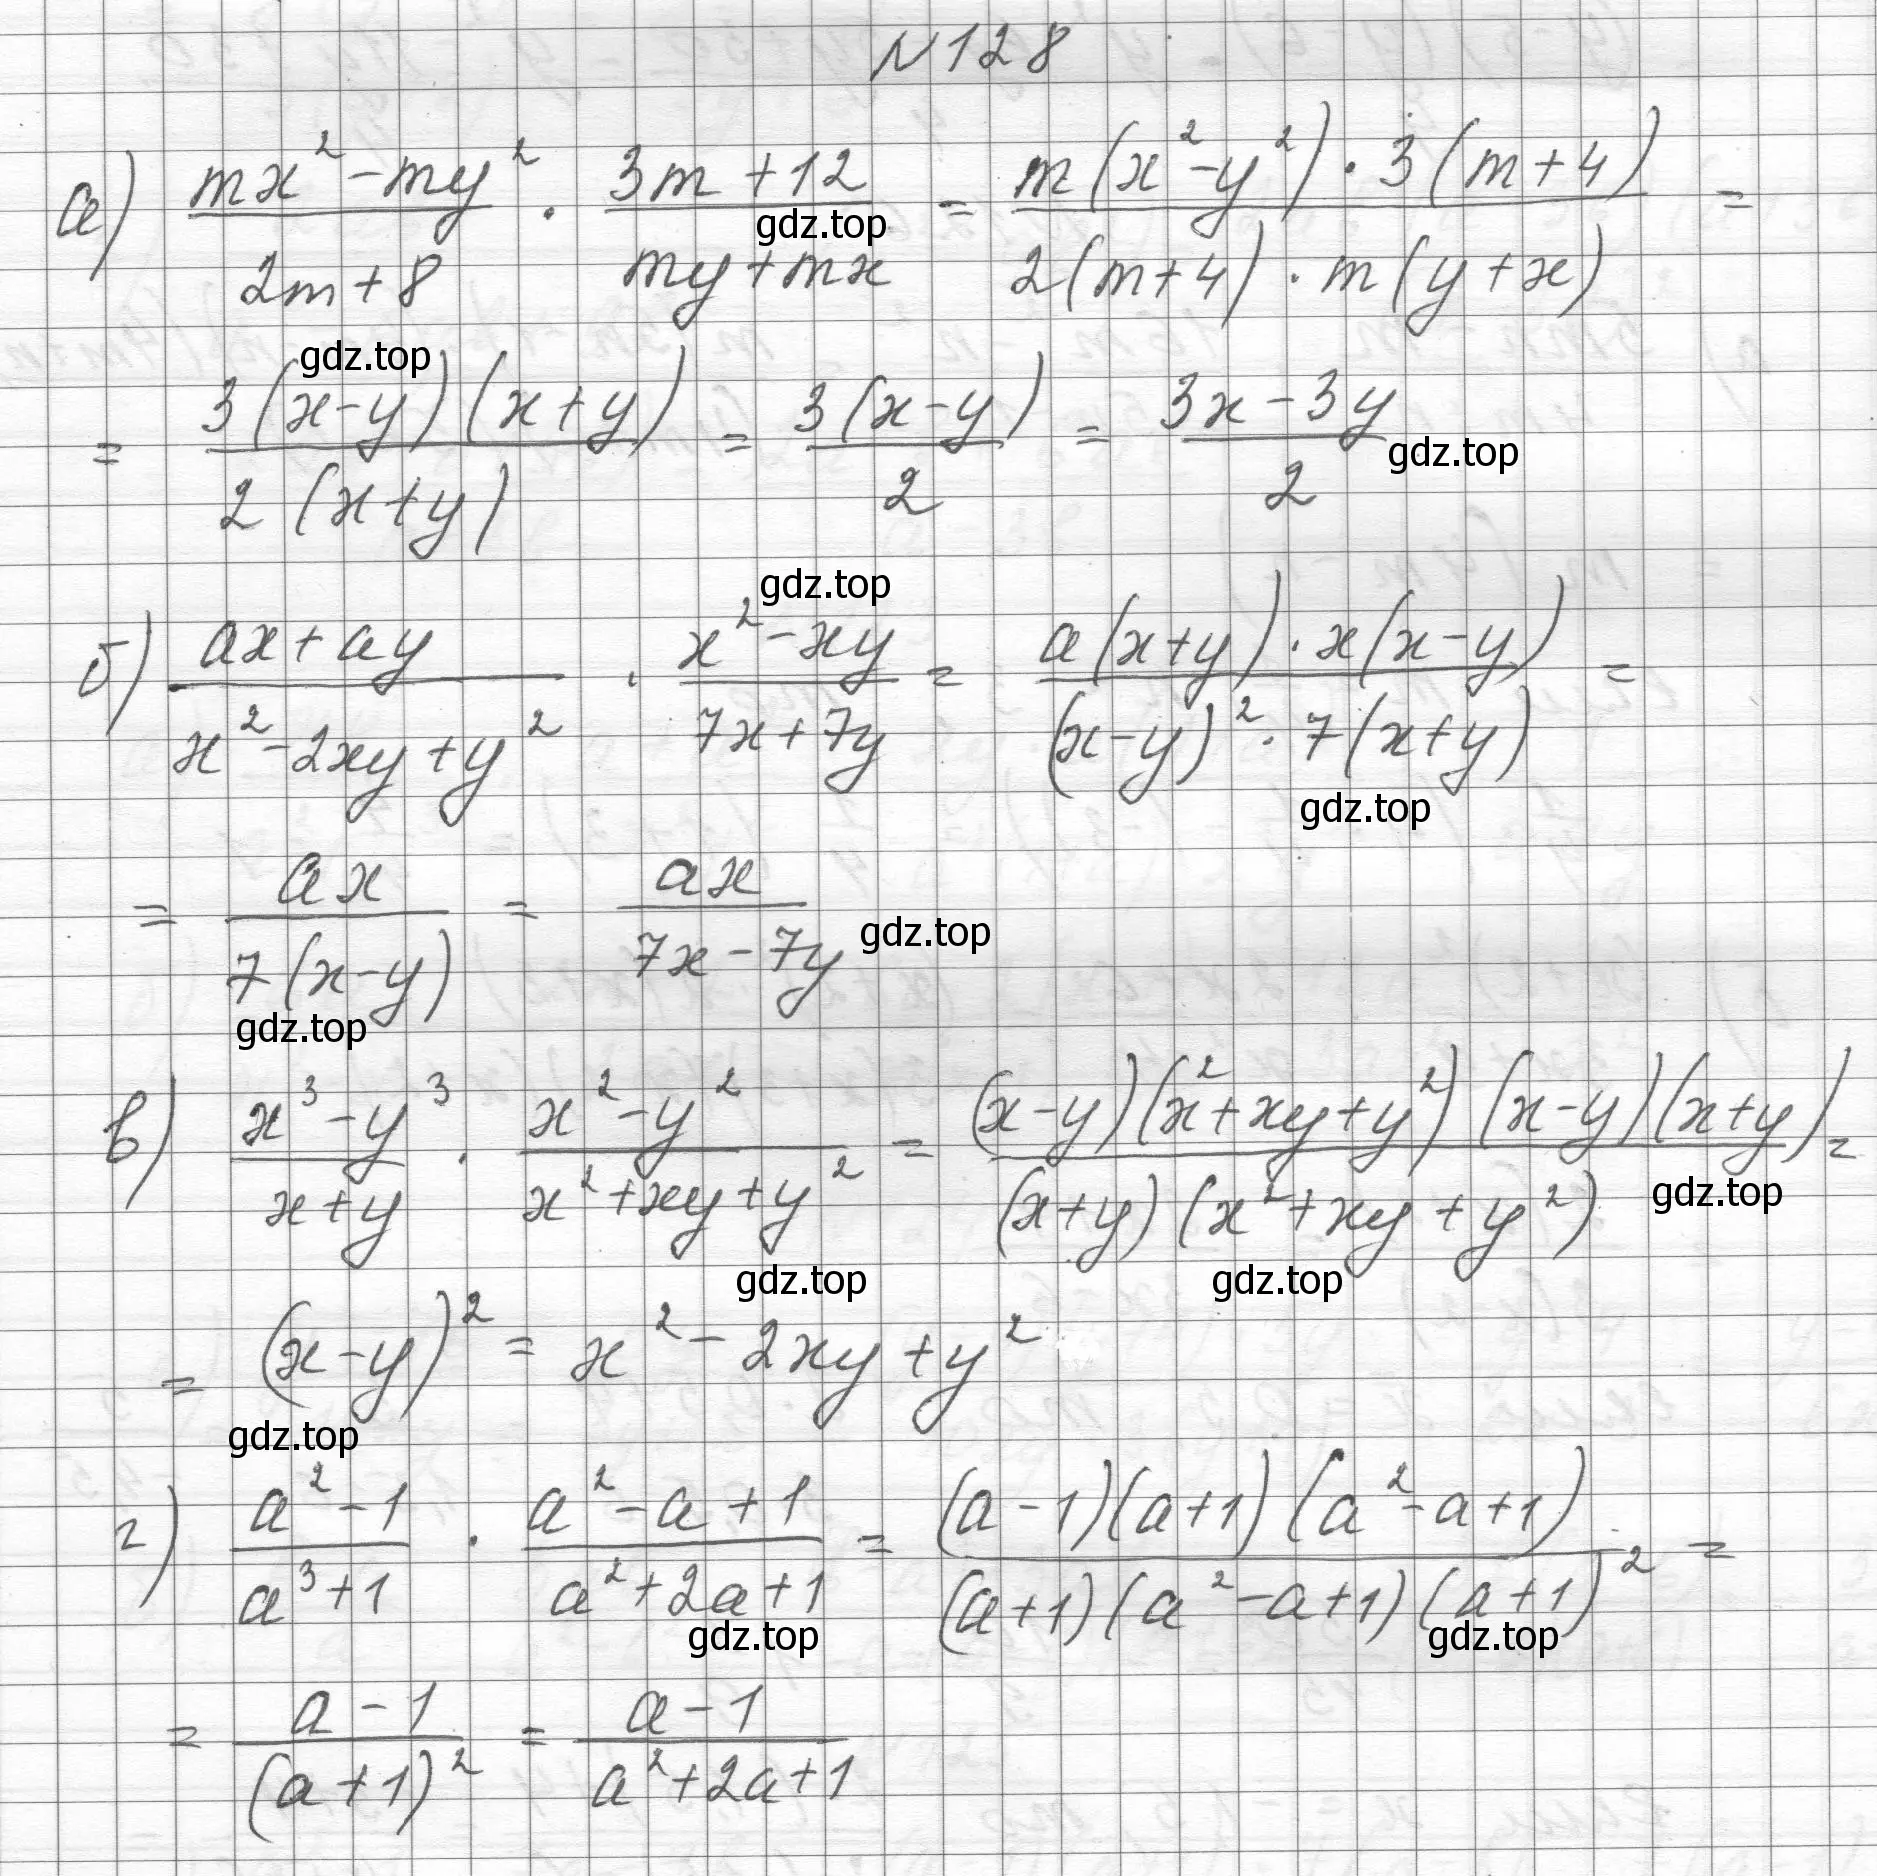 N 128
а) (mx² - my²)/(2m + 8) · (3m + 12)/(my + mx) = (m(x² - y²) · 3(m + 4))/(2(m + 4) · m(y + x)) =
gdz.top
gdz.top
= (3(x - y)(x + y))/(2(x + y)) = (3(x - y))/2 = (3x - 3y)/2
gdz.top
gdz.top
б) (ax + ay)/(x² - 2xy + y²) · (x² - xy)/(7x + 7y) = (a(x + y) · x(x - y))/((x - y)² · 7(x + y)) =
gdz.top
= ax/(7(x - y)) = ax/(7x - 7y)
gdz.top
gdz.top
в) (x³ - y³)/(x + y) · (x² - y²)/(x² + xy + y²) = ((x - y)(x² + xy + y²)(x - y)(x + y))/((x + y)(x² + xy + y²)) =
gdz.top
gdz.top gdz.top
= (x - y)² = x² - 2xy + y²
gdz.top
г) (a² - 1)/(a³ + 1) · (a² - a + 1)/(a² + 2a + 1) = ((a - 1)(a + 1)(a² - a + 1))/((a + 1)(a² - a + 1)(a + 1)²) =
gdz.top gdz.top
= (a - 1)/((a + 1)²) = (a - 1)/(a² + 2a + 1)